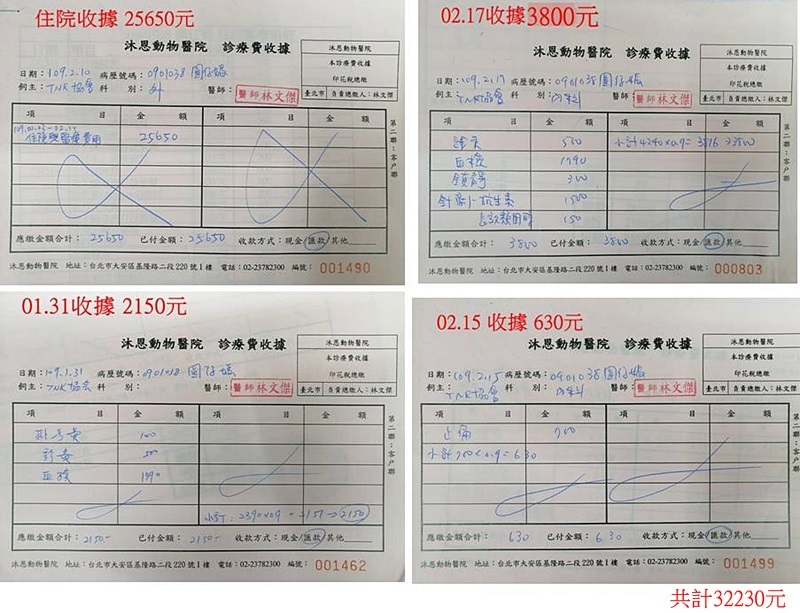 住院收據 25650元
沐恩動物醫院 診療費收據
沐恩動物醫院
本診療費收據
印花稅總繳
臺北市 負責總繳人：林文傑
日期：109.2.10 病歷號碼：0901038 圓仔媽
飼主：TNR協會 科 別：外 醫師：醫師林文傑
項 目 金 額 項 目 金 額
住院與醫療費用 25650
第二聯：客戶聯
應繳金額合計：25650 已付金額：25650 收款方式：現金/匯款/其他
沐恩動物醫院 地址：台北市大安區基隆路二段220號1樓 電話：02-23782300 編號：001490
02.17收據3800元
沐恩動物醫院 診療費收據
沐恩動物醫院
本診療費收據
印花稅總繳
臺北市 負責總繳人：林文傑
日期：109.2.17 病歷號碼：0901038圓仔媽
飼主：TNR協會 科 別：內科 醫師：醫師林文傑
項 目 金 額 項 目 金 額
診察 500 小計4240×0.9=3816→3800
血檢 1790
鎮靜 300
抗生素 1500
150
第二聯：客戶聯
應繳金額合計：3800 已付金額：3800 收款方式：現金/匯款/其他
沐恩動物醫院 地址：台北市大安區基隆路二段220號1樓 電話：02-23782300 編號：000803
01.31收據 2150元
沐恩動物醫院 診療費收據
沐恩動物醫院
本診療費收據
印花稅總繳
臺北市 負責總繳人：林文傑
日期：109.1.31 病歷號碼：0901038 圓仔媽
飼主：TNR協會 科 別： 醫師：醫師林文傑
項 目 金 額 項 目 金 額
掛號費 100
診費 500
血檢 1790
小計：2390×0.9=2151→2150
第二聯：客戶聯
應繳金額合計：2150- 已付金額：2150- 收款方式：現金/匯款/其他
沐恩動物醫院 地址：台北市大安區基隆路二段220號1樓 電話：02-23782300 編號：001462
02.15 收據 630元
沐恩動物醫院 診療費收據
沐恩動物醫院
本診療費收據
印花稅總繳
臺北市 負責總繳人：林文傑
日期：109.2.15 病歷號碼：0901038圓仔媽
飼主：TNR協會 科 別：內科 醫師：醫師林文傑
項 目 金 額 項 目 金 額
止痛 700
小計700×0.9=630
第二聯：客戶聯
應繳金額合計：630 已付金額：630 收款方式：現金/匯款/其他
沐恩動物醫院 地址：台北市大安區基隆路二段220號1樓 電話：02-23782300 編號：001499
共計32230元